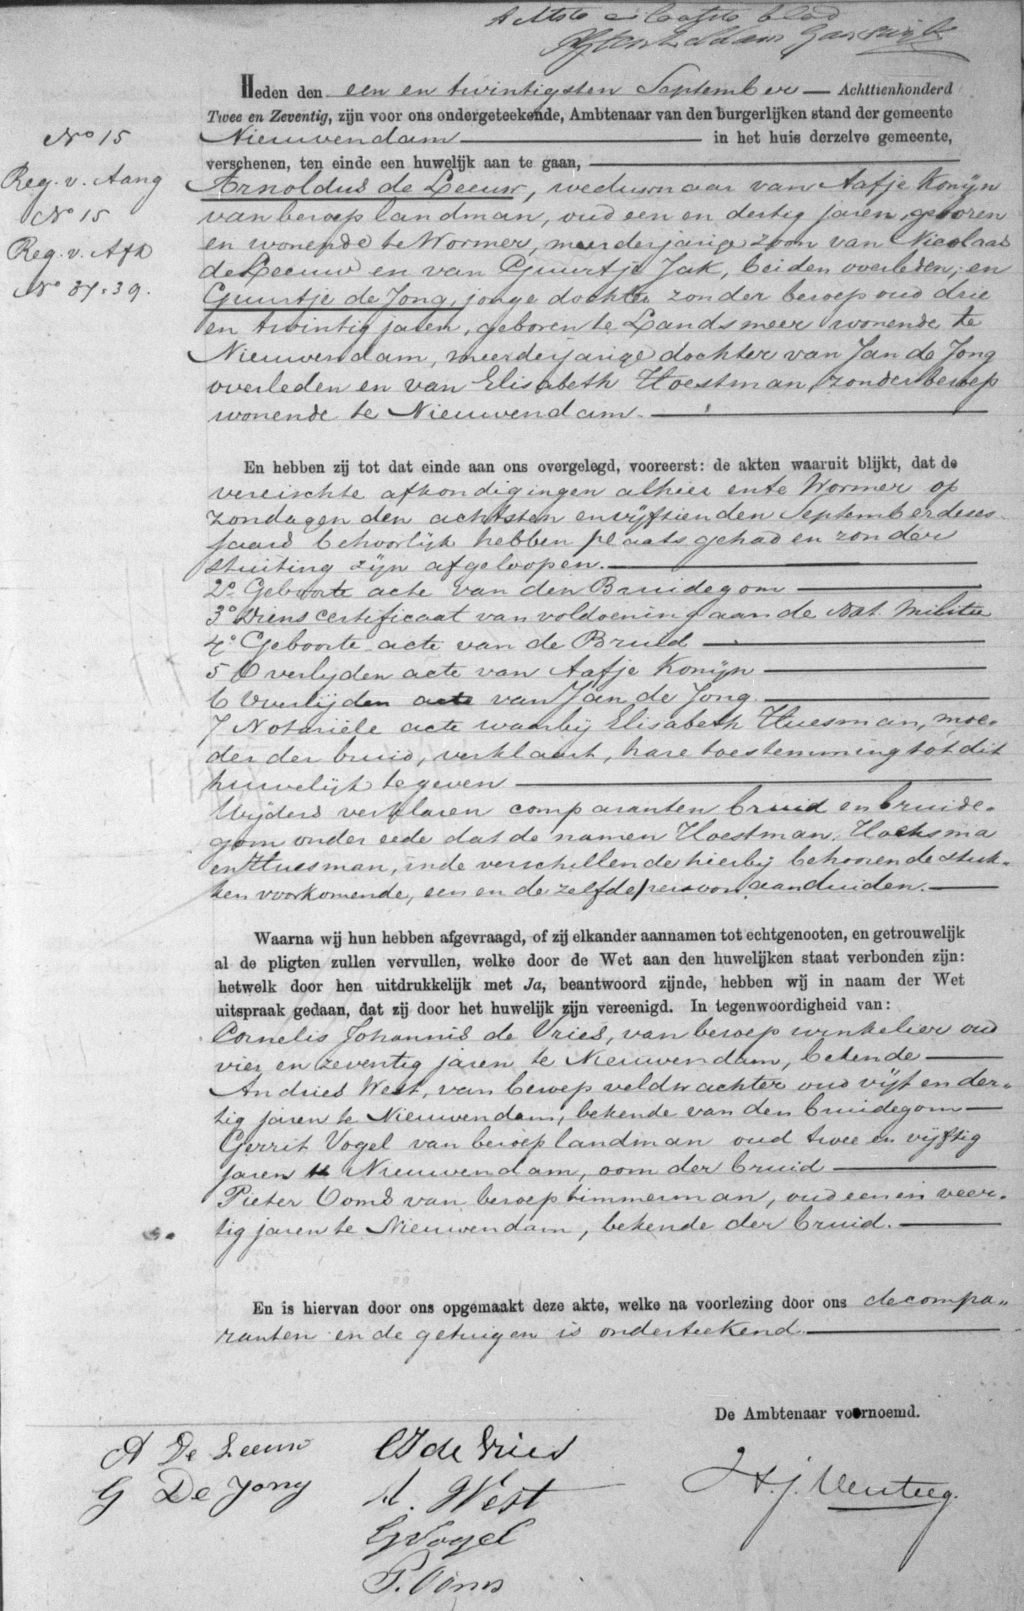 Achtste en laatste blad
Heden den een en twintigsten September — Achttienhonderd
Twee en Zeventig, zijn voor ons ondergeteekende, Ambtenaar van den burgerlijken stand der gemeente
Nieuwendam — in het huis derzelve gemeente,
verschenen, ten einde een huwelijk aan te gaan, —
No 15
Reg. v. Aang
No 15
Reg. v. Afk
No 37.39.
Arnoldus de Leeuw, weduwnaar van Aafje Konijn
van beroep landman, oud een en dertig jaren, geboren
en wonende te Wormer, meerderjarige zoon van Nicolaas
de Leeuw en van Guurtje Jak, beiden overleden, en
Guurtje de Jong, jonge dochter zonder beroep oud drie
en twintig jaren, geboren te Landsmeer wonende te
Nieuwendam, meerderjarige dochter van Jan de Jong
overleden en van Elisabeth Hoestman, zonder beroep
wonende te Nieuwendam. —
En hebben zij tot dat einde aan ons overgelegd, vooreerst: de akten waaruit blijkt, dat de
vereischte afkondigingen alhier en te Wormer op
zondagen den achtsten en vijftienden September dezes
jaars behoorlijk hebben plaats gehad en zonder
stuiting zijn afgeloopen. —
2o Geboorte acte van den Bruidegom —
3o Diens certificaat van voldoening aan de Nat. Militie
4o Geboorte acte van de Bruid —
5 Overlijden acte van Aafje Konijn —
6 Overlijden acte van Jan de Jong. —
7 Notariële acte waarbij Elisabeth Huesman, moe-
der der bruid, verklaart, hare toestemming tot dit
huwelijk te geven —
Wijders verklaren comparanten bruid en bruide-
gom onder eede dat de namen Hoestman, Hoeksma
en Huesman, in de verschillende hierbij behoorende stuk-
ken voorkomende, een en de zelfde persoon aanduiden. —
Waarna wij hun hebben afgevraagd, of zij elkander aannamen tot echtgenooten, en getrouwelijk
al de pligten zullen vervullen, welke door de Wet aan den huwelijken staat verbonden zijn:
hetwelk door hen uitdrukkelijk met Ja, beantwoord zijnde, hebben wij in naam der Wet
uitspraak gedaan, dat zij door het huwelijk zijn vereenigd. In tegenwoordigheid van:
Cornelis Johannis de Vries, van beroep winkelier oud
vier en zeventig jaren te Nieuwendam, bekende —
Andries West, van beroep veldwachter oud vijf en der-
tig jaren te Nieuwendam, bekende van den bruidegom —
Gerrit Vogel van beroep landman oud twee en vijftig
jaren te Nieuwendam, oom der bruid —
Pieter Ooms van beroep timmerman, oud een en veer-
tig jaren te Nieuwendam, bekende der bruid. —
En is hiervan door ons opgemaakt deze akte, welke na voorlezing door ons de compa-
ranten en de getuigen is onderteekend. —
De Ambtenaar voornoemd.
A De Leeuw
G De Jong
CJ de Vries
A. West
G Vogel
P. Ooms
H. J. Venteeg.